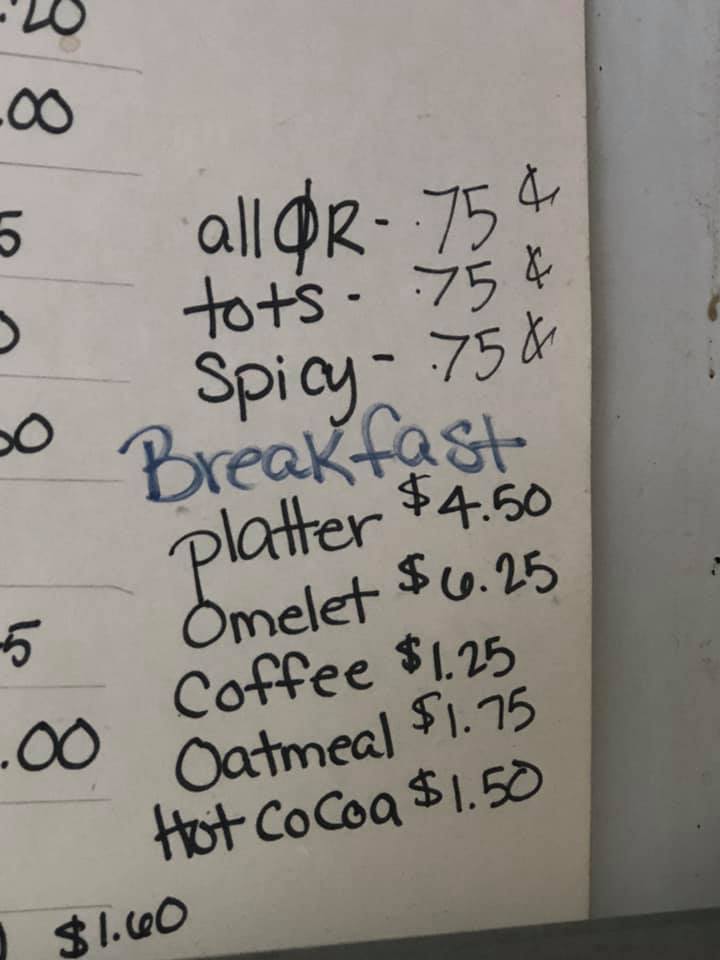 .20
.00
5
0
50
5
.00
$1.60
all ØR - .75 ¢
tots - .75 ¢
Spicy - .75 ¢
Breakfast
platter $4.50
Omelet $6.25
Coffee $1.25
Oatmeal $1.75
Hot CoCoa $1.50